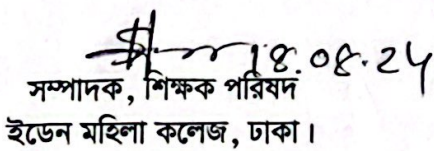 18.08.24
সম্পাদক, শিক্ষক পরিষদ
ইডেন মহিলা কলেজ, ঢাকা।